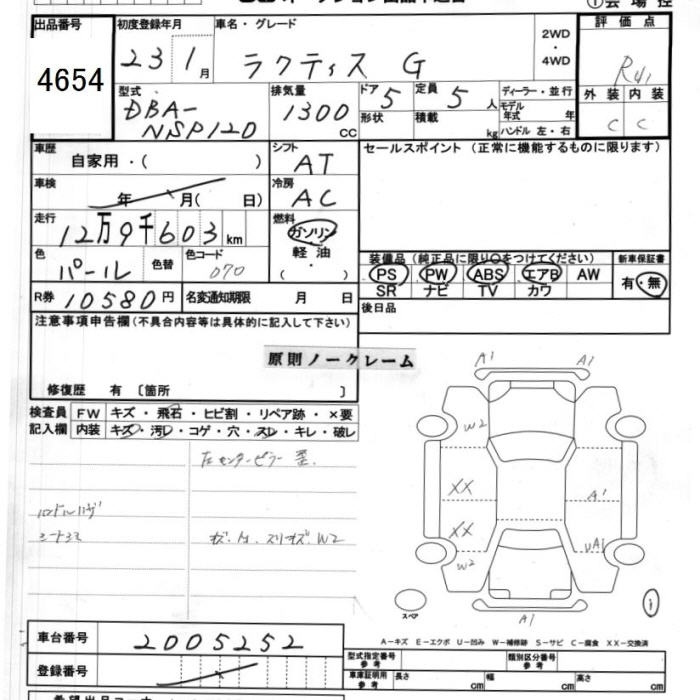 出品番号
4654
初度登録年月
23 1月
車名・グレード
ラクティス G
2WD
・
4WD
評価点
外装 内装
C C
型式
DBA-
NSP120
排気量
1300
CC
ドア 5
定員 5 人
形状
積載 kg
ディーラー・並行
モデル
年式 年
ハンドル 左・右
車歴
自家用・( )
シフト
AT
セールスポイント (正常に機能するものに限ります)
車検
年 月( 日)
冷房
AC
走行
12万9千603km
燃料
ガソリン
軽油
( ・ )
色
パール
色替
色コード
070
装備品 (純正品に限り○をつけてください)
PS PW ABS エアB AW
SR ナビ TV カワ
新車保証書
有・無
R券 10580円
名変通知期限 月 日
後日品
注意事項申告欄(不具合内容等は具体的に記入して下さい)
原則ノークレーム
修復歴 有 〔箇所 〕
検査員
記入欄
FW キズ・飛石・ヒビ割・リペア跡・×要
内装 キズ・汚レ・コゲ・穴・スレ・キレ・破レ
左センターピラー
A1 A1
W2
XX
A1
XX
UA1
W2
スペア
A1
A-キズ E-エクボ U-凹み W-補修跡 S-サビ C-腐食 XX-交換済
車台番号
2005252
登録番号
型式指定番号
参考
類別区分番号
参考
車庫証明用
参考
長さ cm 幅 cm 高さ cm